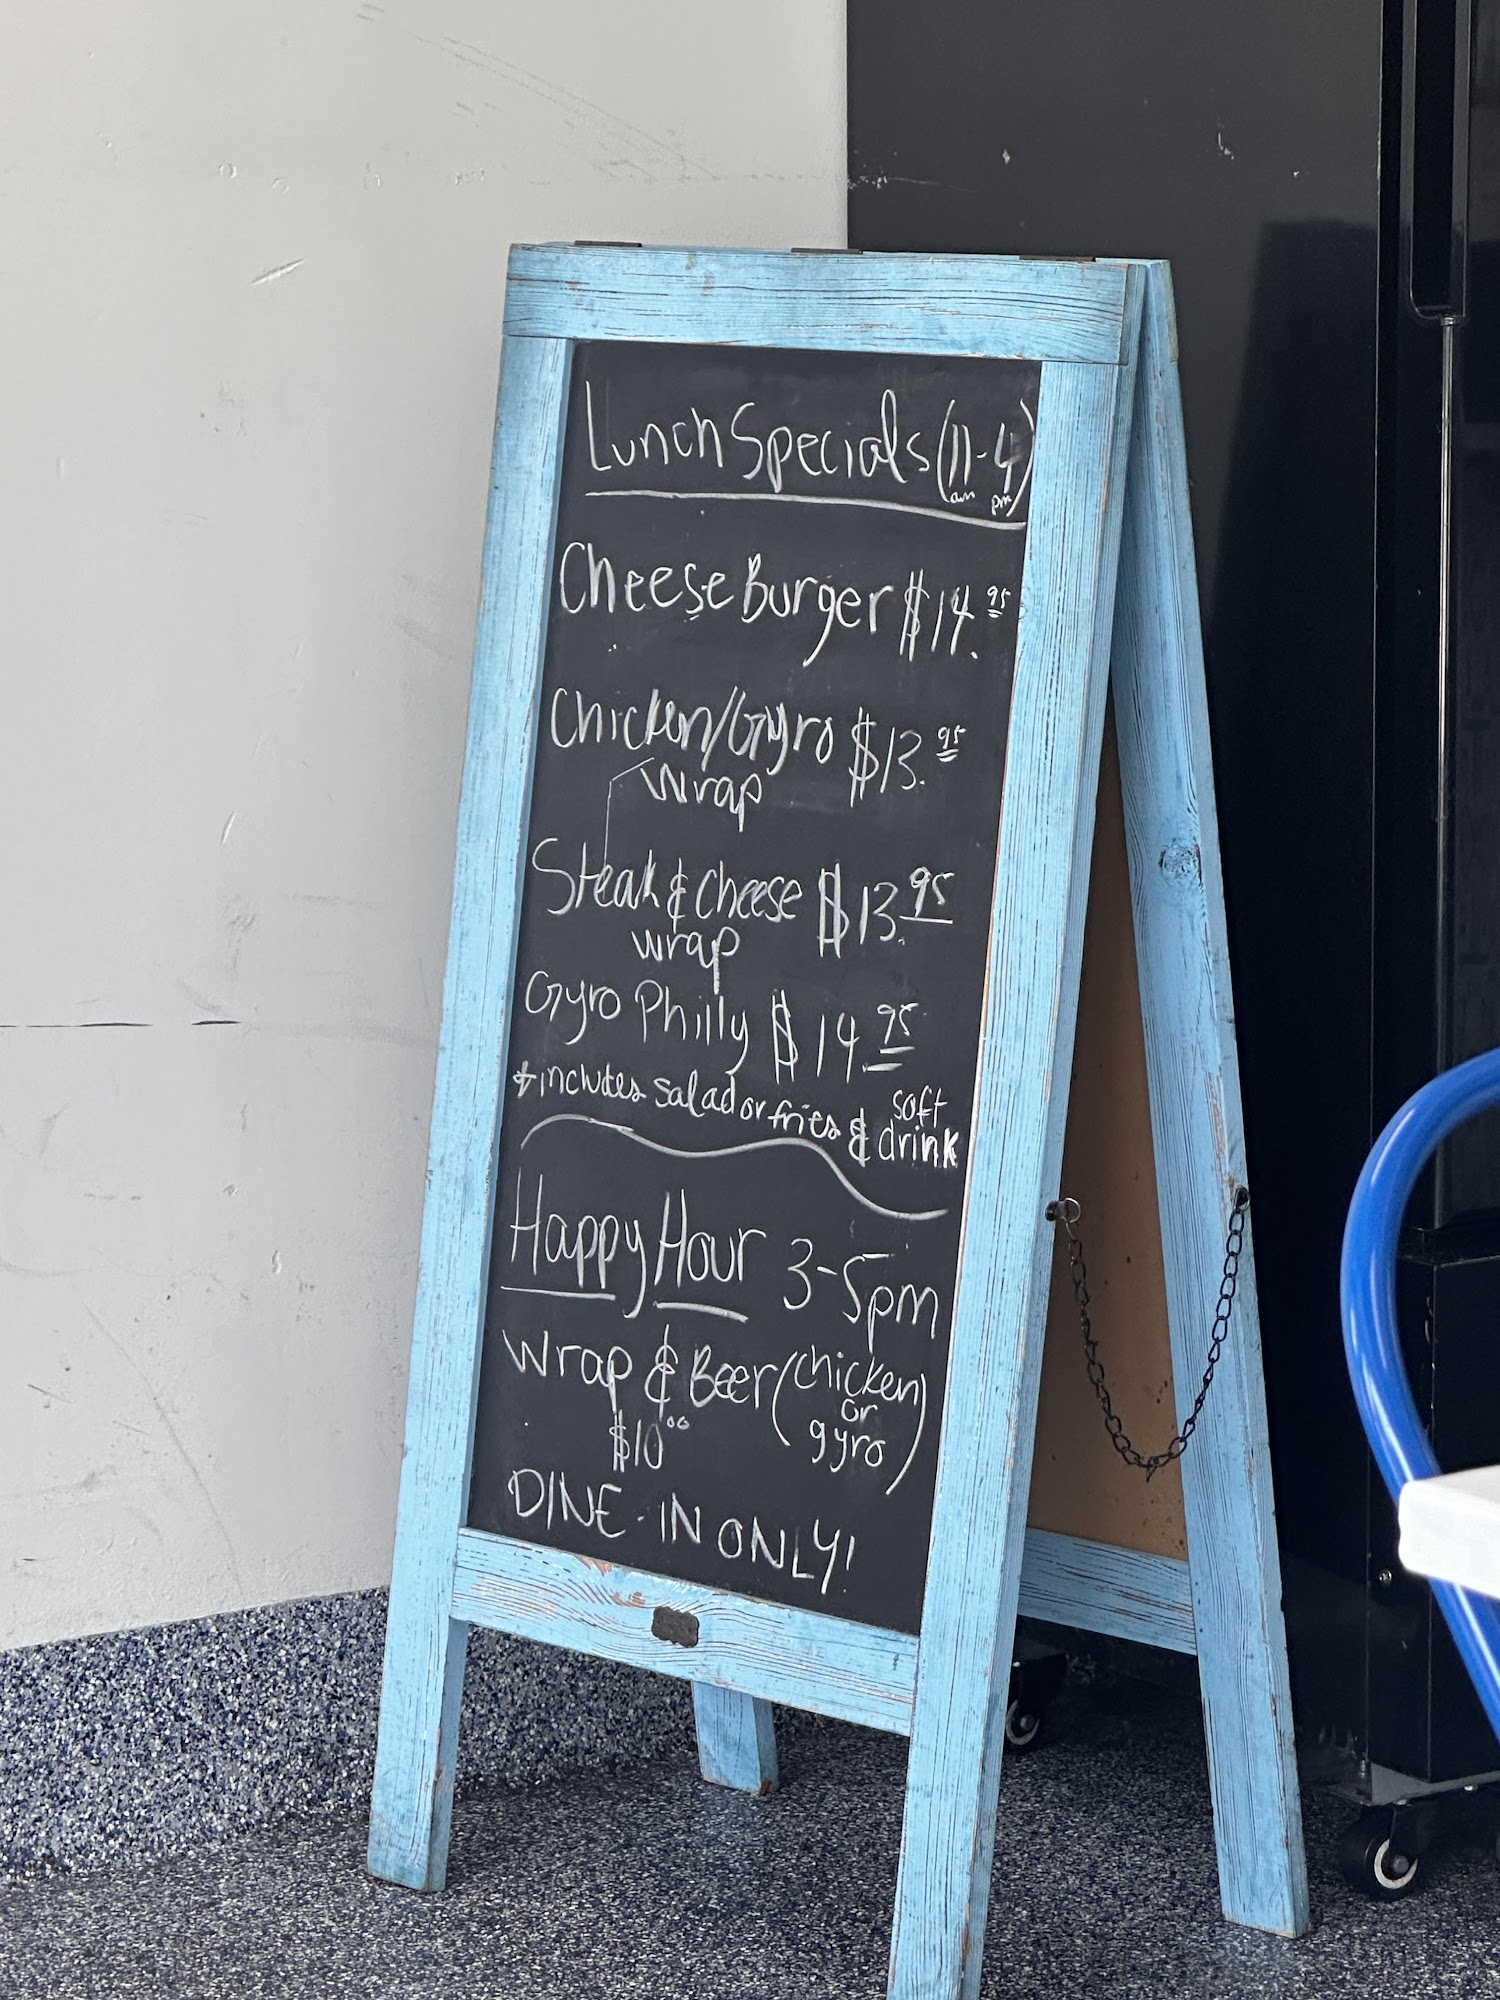 Lunch Specials (11am-4pm)
Cheese Burger $14.95
Chicken/Gyro $13.95
wrap
Steak & cheese $13.95
wrap
Gyro Philly $14.95
*includes salad or fries & soft drink
Happy Hour 3-5pm
Wrap & Beer (chicken or gyro)
$10.00
DINE-IN ONLY!